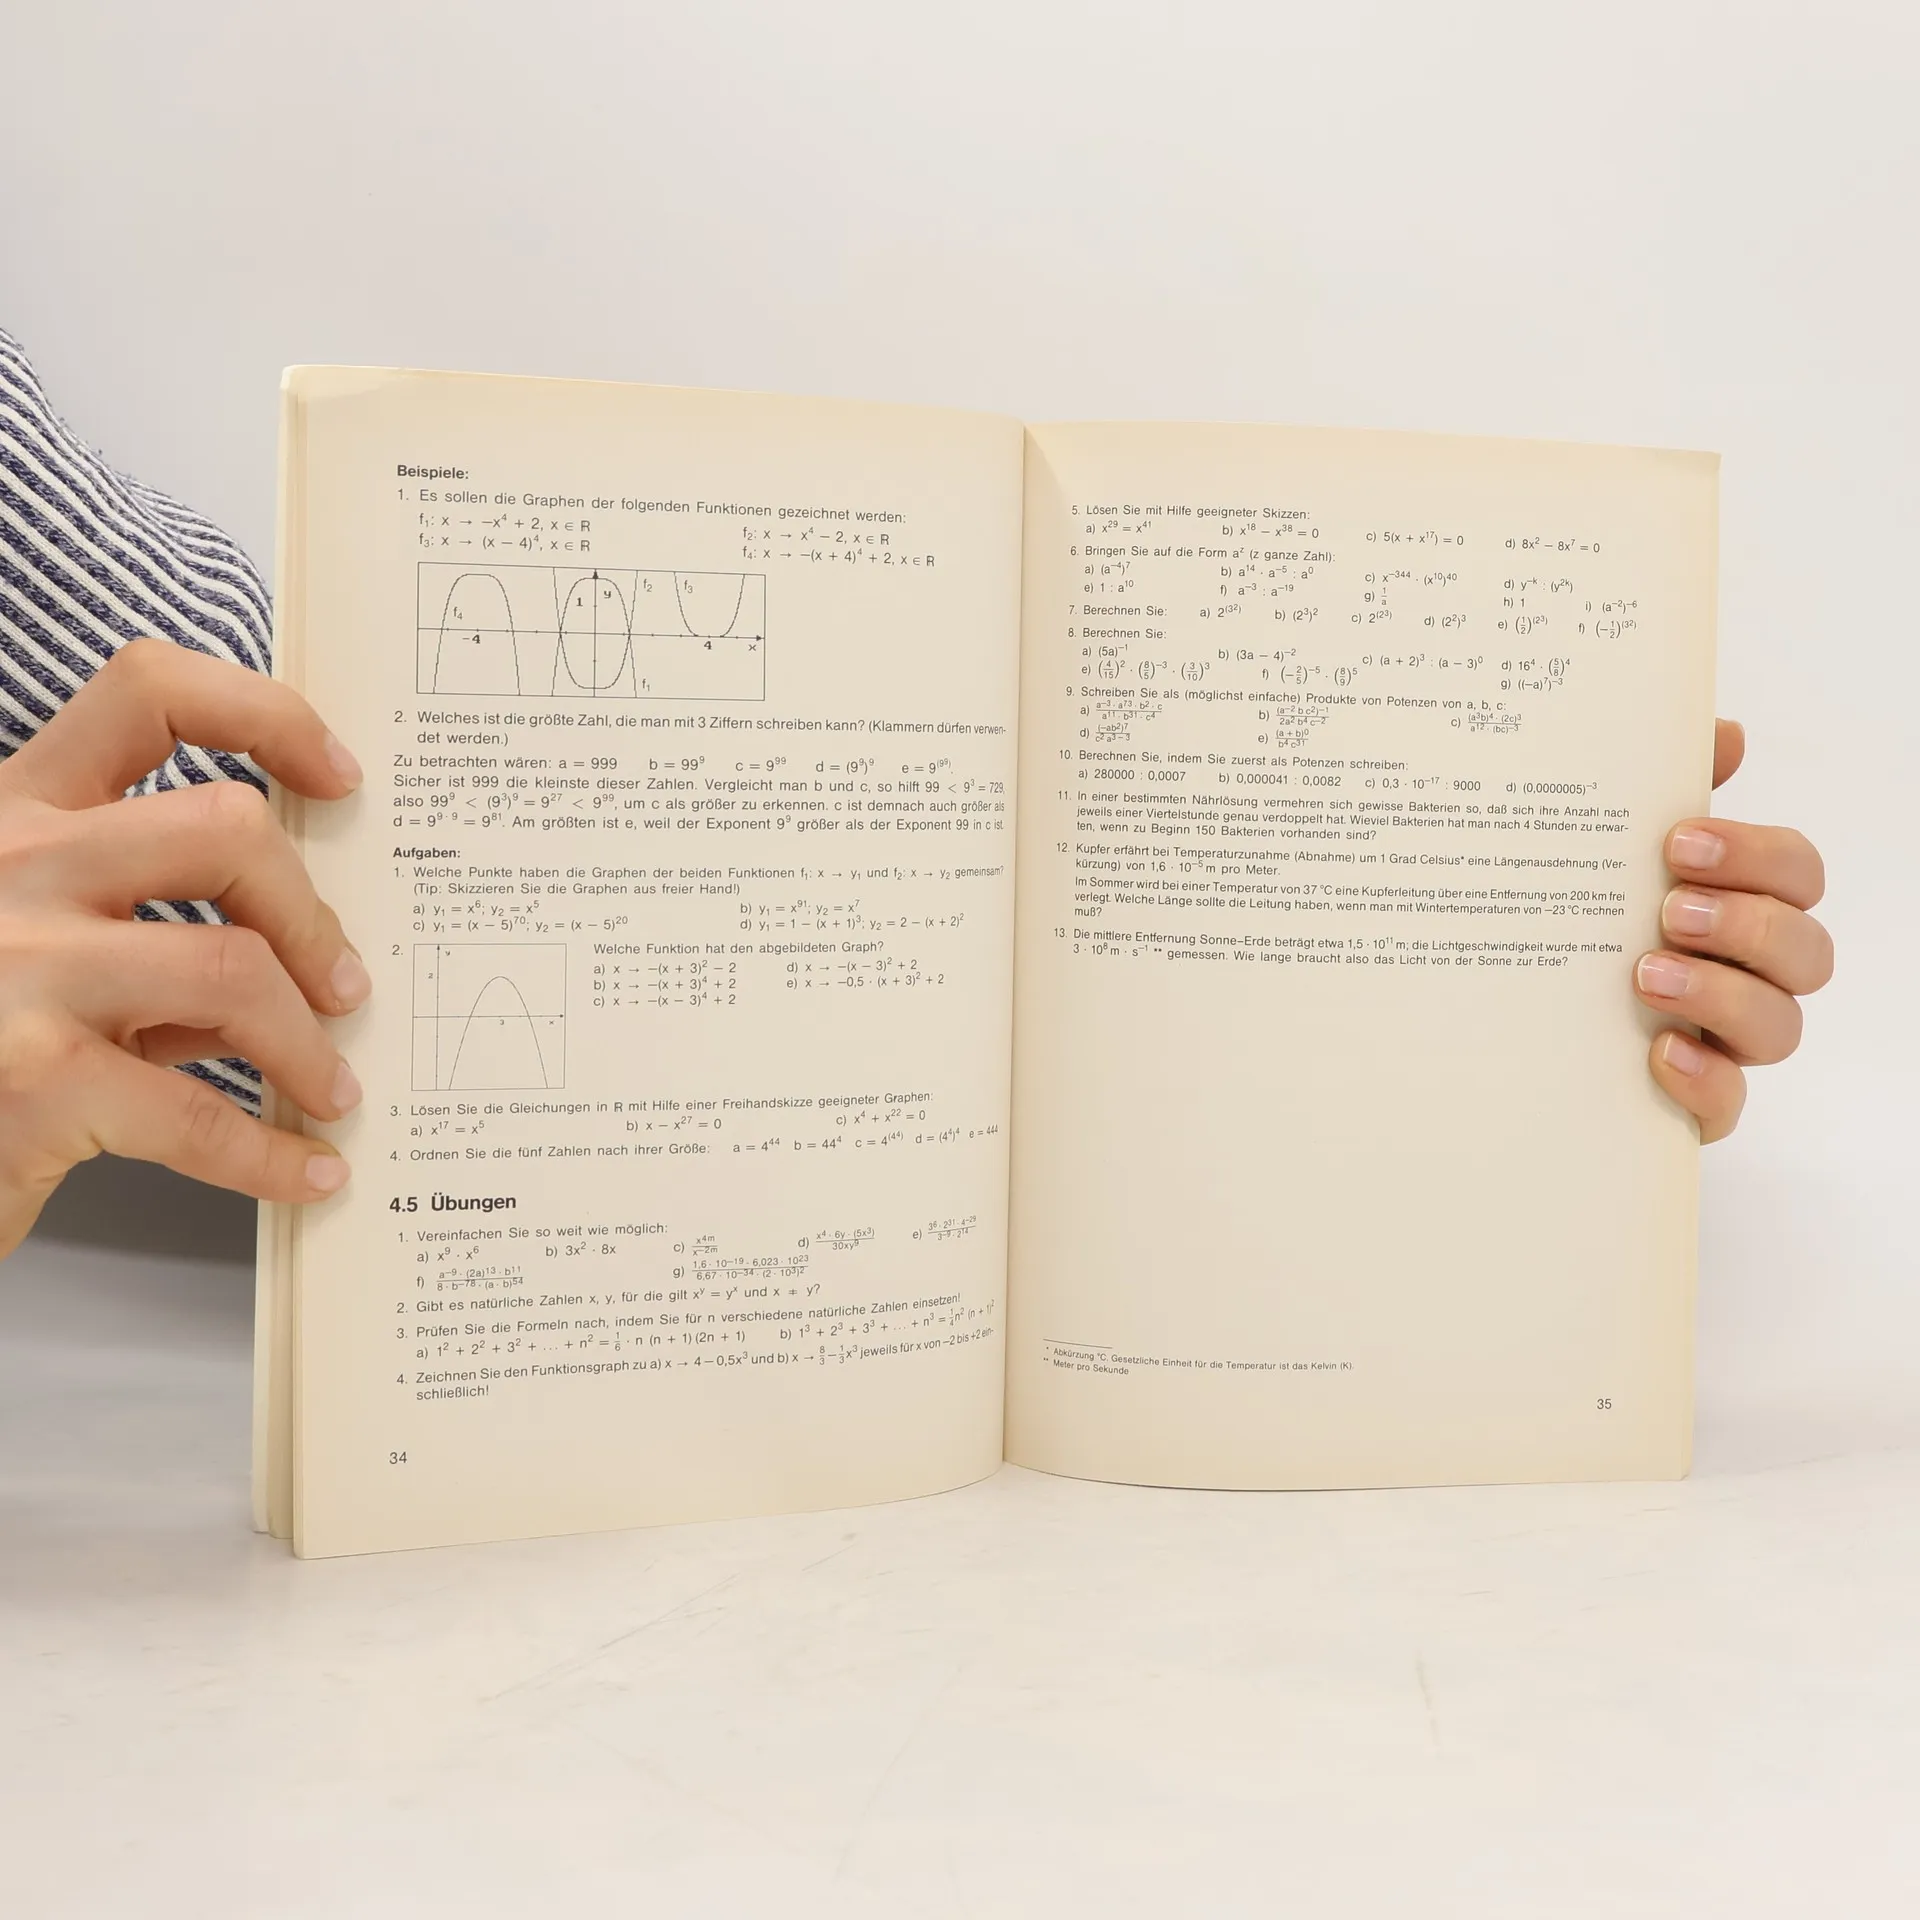 Beispiele:
1. Es sollen die Graphen der folgenden Funktionen gezeichnet werden:
f₁: x → −x⁴ + 2, x ∈ ℝ f₂: x → x⁴ − 2, x ∈ ℝ
f₃: x → (x − 4)⁴, x ∈ ℝ f₄: x → −(x + 4)⁴ + 2, x ∈ ℝ
f₄ −4 1 y f₂ f₃ 4 x f₁
2. Welches ist die größte Zahl, die man mit 3 Ziffern schreiben kann? (Klammern dürfen verwen-
det werden.)
Zu betrachten wären: a = 999 b = 99⁹ c = 9⁹⁹ d = (9⁹)⁹ e = 9^(9⁹).
Sicher ist 999 die kleinste dieser Zahlen. Vergleicht man b und c, so hilft 99 < 9³ = 729,
also 99⁹ < (9³)⁹ = 9²⁷ < 9⁹⁹, um c als größer zu erkennen. c ist demnach auch größer als
d = 9⁹·⁹ = 9⁸¹. Am größten ist e, weil der Exponent 9⁹ größer als der Exponent 99 in c ist.
Aufgaben:
1. Welche Punkte haben die Graphen der beiden Funktionen f₁: x → y₁ und f₂: x → y₂ gemeinsam?
(Tip: Skizzieren Sie die Graphen aus freier Hand!)
a) y₁ = x⁶; y₂ = x⁵ b) y₁ = x⁹¹; y₂ = x⁷
c) y₁ = (x − 5)⁷⁰; y₂ = (x − 5)²⁰ d) y₁ = 1 − (x + 1)³; y₂ = 2 − (x + 2)²
2. Welche Funktion hat den abgebildeten Graph?
y 2 3 x
a) x → −(x + 3)² − 2 d) x → −(x − 3)² + 2
b) x → −(x + 3)⁴ + 2 e) x → −0,5 · (x + 3)² + 2
c) x → −(x − 3)⁴ + 2
3. Lösen Sie die Gleichungen in ℝ mit Hilfe einer Freihandskizze geeigneter Graphen:
a) x¹⁷ = x⁵ b) x − x²⁷ = 0 c) x⁴ + x²² = 0
4. Ordnen Sie die fünf Zahlen nach ihrer Größe: a = 4⁴⁴ b = 44⁴ c = 4^(4⁴) d = (4⁴)⁴ e = 444
4.5 Übungen
1. Vereinfachen Sie so weit wie möglich:
a) x⁹ · x⁶ b) 3x² · 8x c) x⁴ᵐ / x⁻²ᵐ d) x⁴ · 6y · (5x³) / 30xy⁹ e) 3⁶ · 2³¹ · 4⁻²⁹ / 3⁻⁹ · 2¹⁴
f) a⁻⁹ · (2a)¹³ · b¹¹ / 8 · b⁻⁷⁸ · (a · b)⁵⁴ g) 1,6 · 10⁻¹⁹ · 6,023 · 10²³ / 6,67 · 10⁻³⁴ · (2 · 10³)²
2. Gibt es natürliche Zahlen x, y, für die gilt xʸ = yˣ und x ≠ y?
3. Prüfen Sie die Formeln nach, indem Sie für n verschiedene natürliche Zahlen einsetzen!
a) 1² + 2² + 3² + ... + n² = 1/6 · n (n + 1) (2n + 1) b) 1³ + 2³ + 3³ + ... + n³ = 1/4 n² (n + 1)²
4. Zeichnen Sie den Funktionsgraph zu a) x → 4 − 0,5x³ und b) x → 8/3 − 1/3 x³ jeweils für x von −2 bis +2 ein-
schließlich!
34
5. Lösen Sie mit Hilfe geeigneter Skizzen:
a) x²⁹ = x⁴¹ b) x¹⁸ − x³⁸ = 0 c) 5(x + x¹⁷) = 0 d) 8x² − 8x⁷ = 0
6. Bringen Sie auf die Form aᶻ (z ganze Zahl):
a) (a⁻⁴)⁷ b) a¹⁴ · a⁻⁵ : a⁰ c) x⁻³⁴⁴ · (x¹⁰)⁴⁰ d) y⁻ᵏ : (y²ᵏ)
e) 1 : a¹⁰ f) a⁻³ : a⁻¹⁹ g) 1/a h) 1 i) (a⁻²)⁻⁶
7. Berechnen Sie: a) 2^(3²) b) (2³)² c) 2^(2³) d) (2²)³ e) (1/2)^(2³) f) (−1/2)^(3²)
8. Berechnen Sie:
a) (5a)⁻¹ b) (3a − 4)⁻² c) (a + 2)³ : (a − 3)⁰ d) 16⁴ · (5/8)⁴
e) (4/15)² · (8/5)⁻³ · (3/10)³ f) (−2/5)⁻⁵ · (8/9)⁵ g) ((−a)⁷)⁻³
9. Schreiben Sie als (möglichst einfache) Produkte von Potenzen von a, b, c:
a) a⁻³ · a⁷³ · b² · c / a¹¹ · b³¹ · c⁴ b) (a⁻² b c²)⁻¹ / 2a² b⁴ c⁻² c) (a³b)⁴ · (2c)³ / a¹² · (bc)⁻³
d) (−ab²)⁷ / c² a³⁻³ e) (a + b)⁰ / b⁴ c³¹
10. Berechnen Sie, indem Sie zuerst als Potenzen schreiben:
a) 280000 : 0,0007 b) 0,000041 : 0,0082 c) 0,3 · 10⁻¹⁷ : 9000 d) (0,0000005)⁻³
11. In einer bestimmten Nährlösung vermehren sich gewisse Bakterien so, daß sich ihre Anzahl nach
jeweils einer Viertelstunde genau verdoppelt hat. Wieviel Bakterien hat man nach 4 Stunden zu erwar-
ten, wenn zu Beginn 150 Bakterien vorhanden sind?
12. Kupfer erfährt bei Temperaturzunahme (Abnahme) um 1 Grad Celsius* eine Längenausdehnung (Ver-
kürzung) von 1,6 · 10⁻⁵ m pro Meter.
Im Sommer wird bei einer Temperatur von 37 °C eine Kupferleitung über eine Entfernung von 200 km frei
verlegt. Welche Länge sollte die Leitung haben, wenn man mit Wintertemperaturen von −23 °C rechnen
muß?
13. Die mittlere Entfernung Sonne–Erde beträgt etwa 1,5 · 10¹¹ m; die Lichtgeschwindigkeit wurde mit etwa
3 · 10⁸ m · s⁻¹ ** gemessen. Wie lange braucht also das Licht von der Sonne zur Erde?
* Abkürzung °C. Gesetzliche Einheit für die Temperatur ist das Kelvin (K).
** Meter pro Sekunde
35